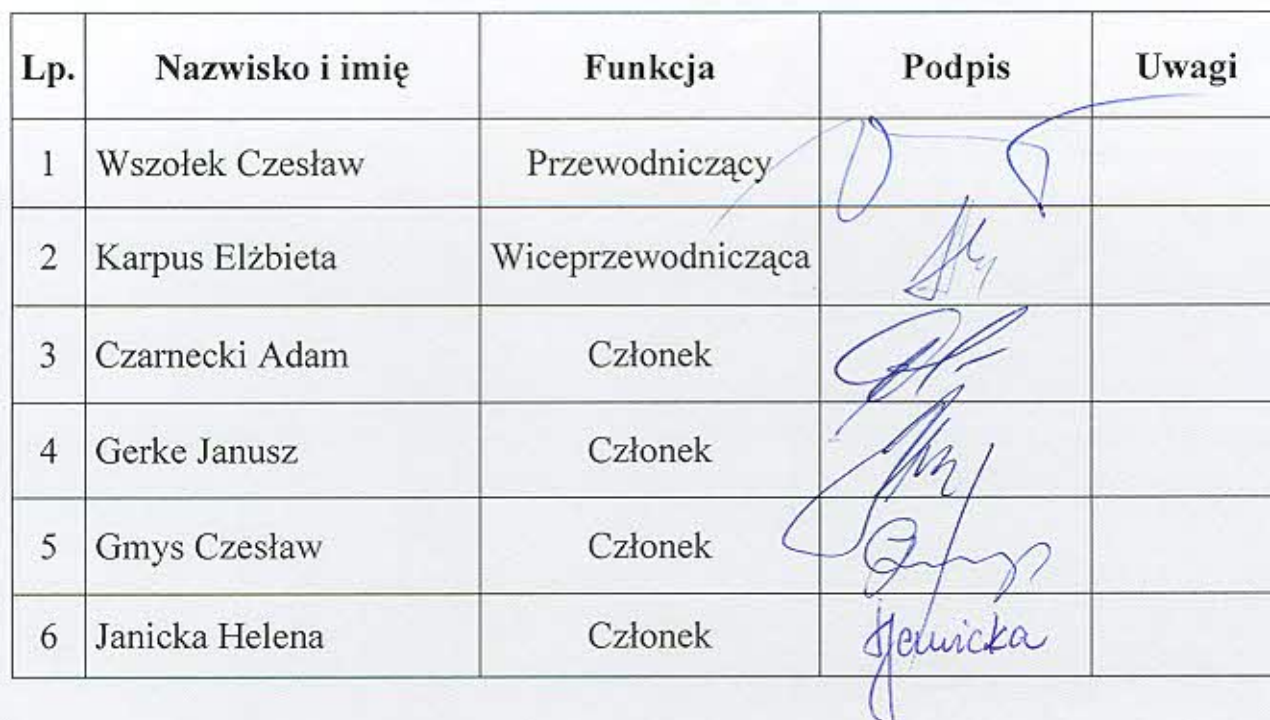 Lp. Nazwisko i imię Funkcja Podpis Uwagi
1 Wszołek Czesław Przewodniczący
2 Karpus Elżbieta Wiceprzewodnicząca
3 Czarnecki Adam Członek
4 Gerke Janusz Członek
5 Gmys Czesław Członek
6 Janicka Helena Członek